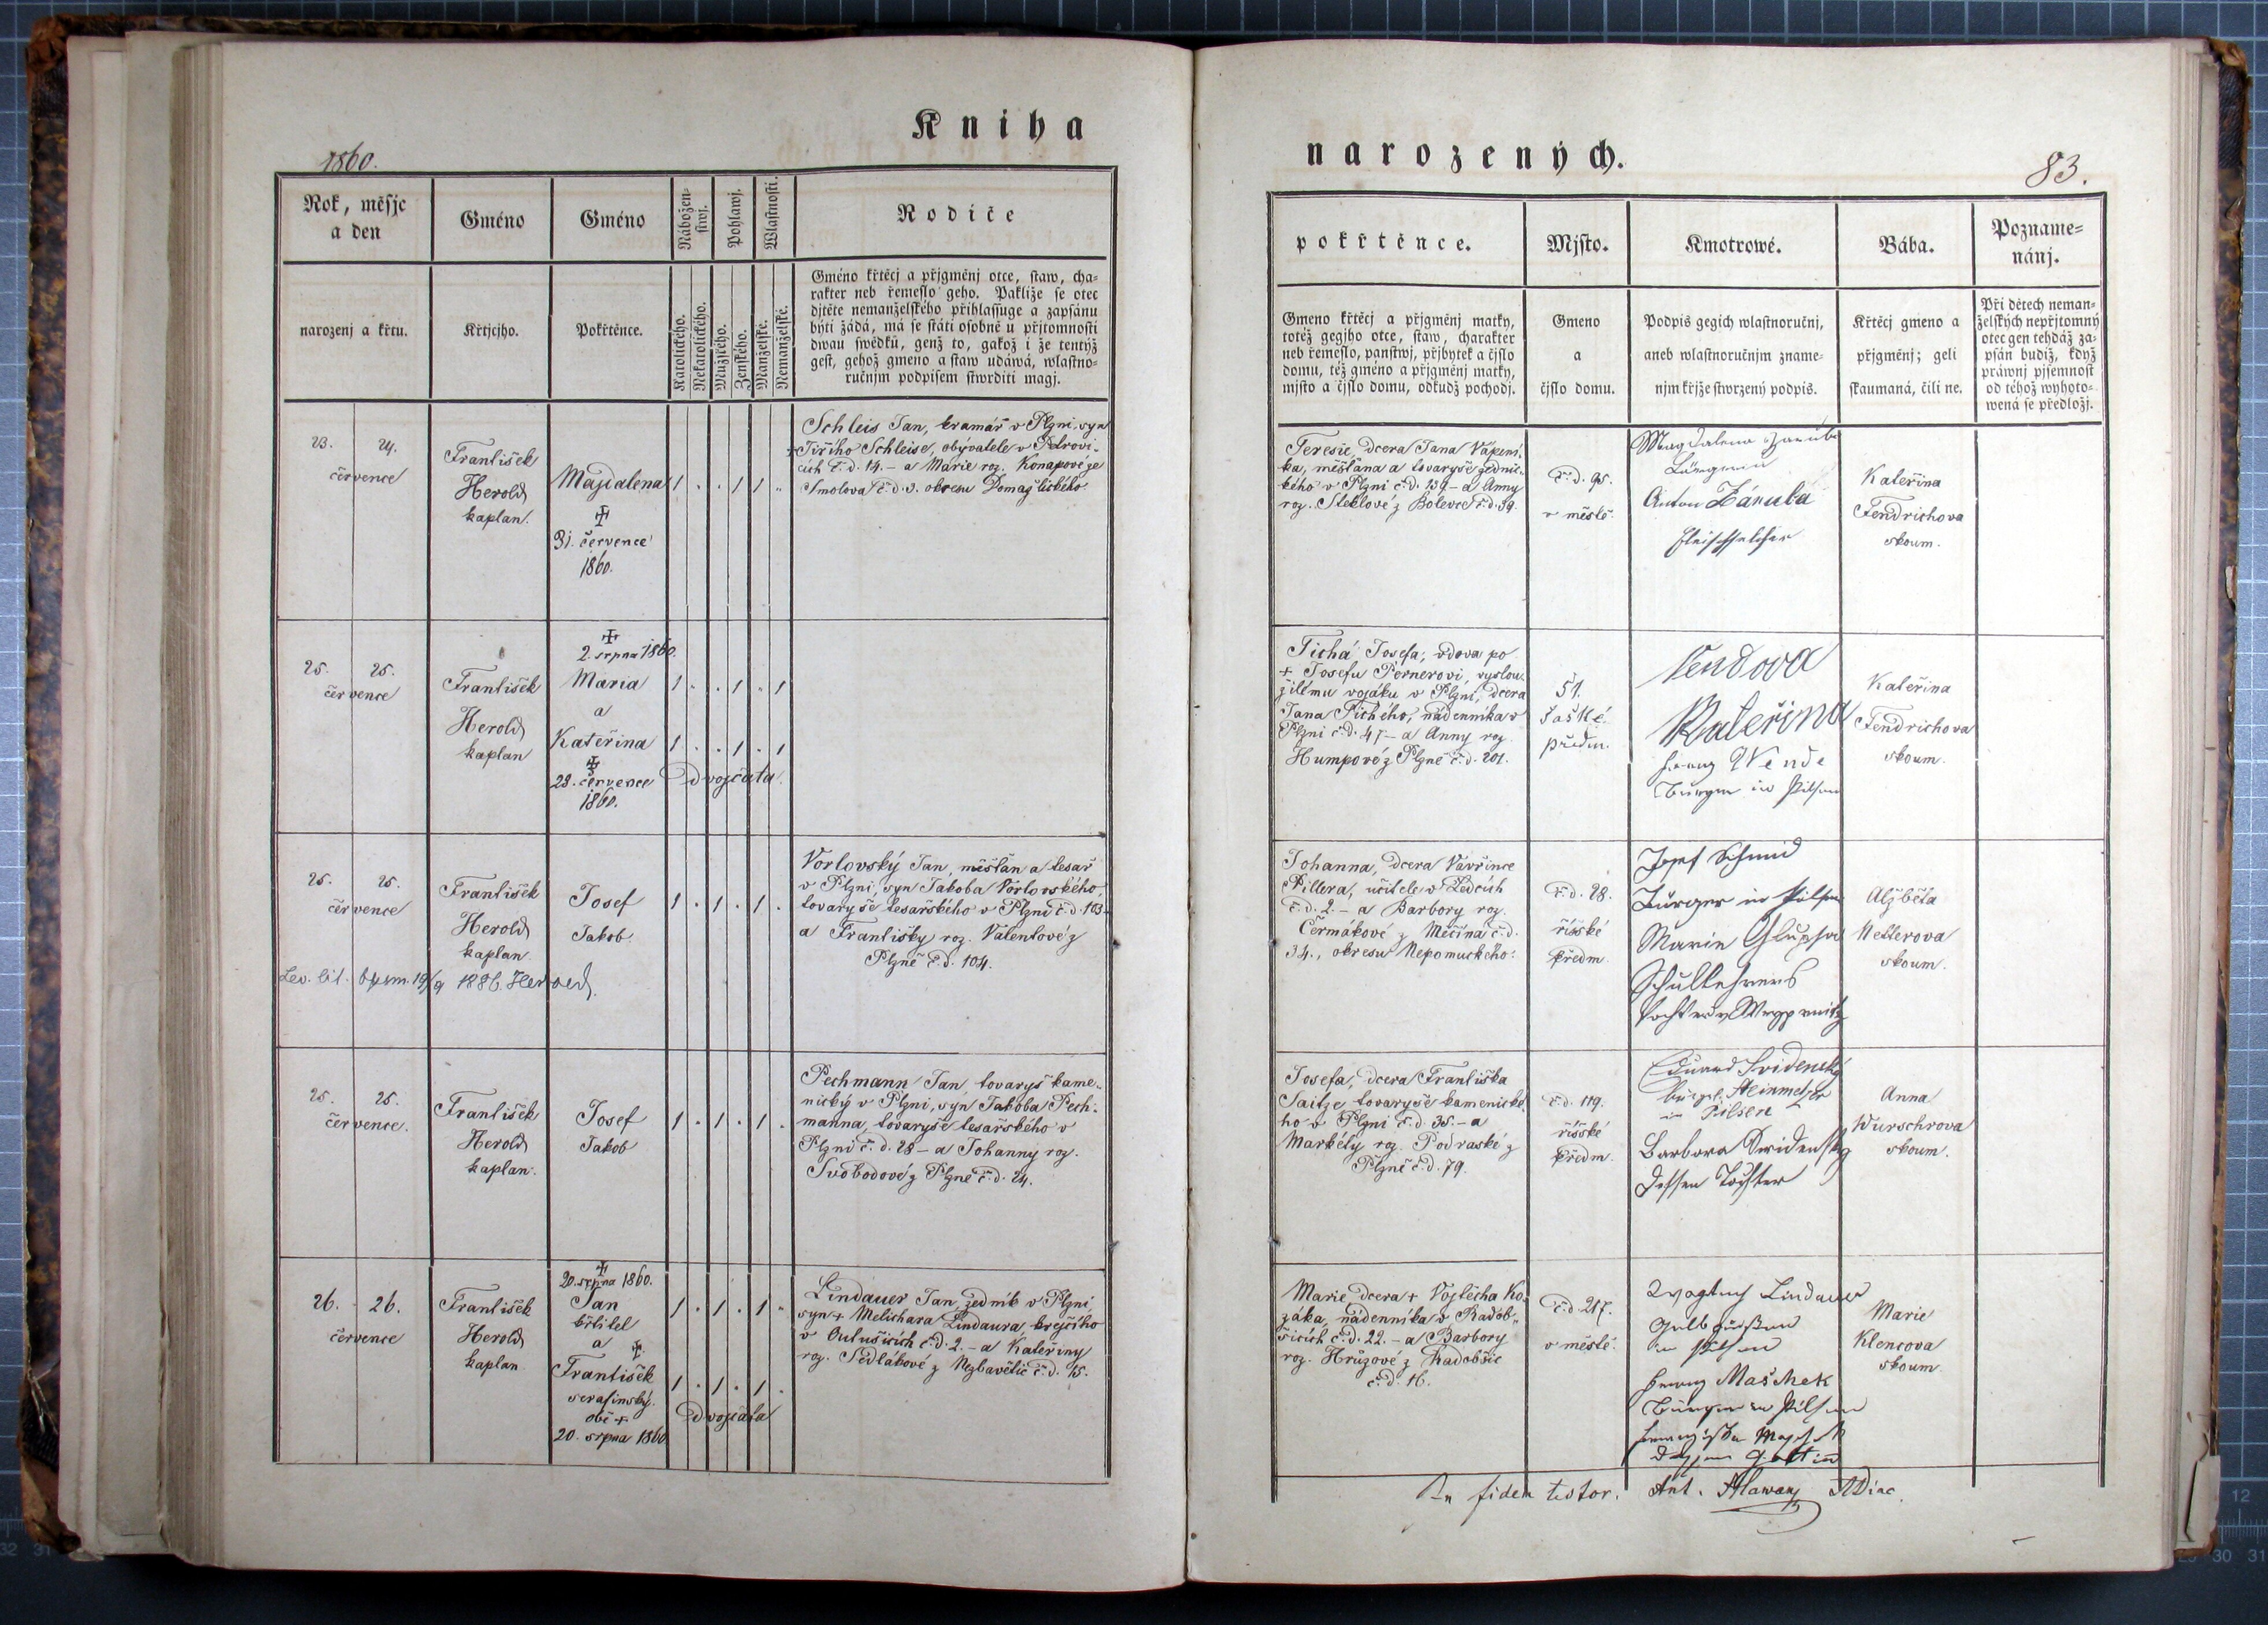 Kniha
1860.
Rok, měsýc
a den
Gméno
Gméno
Nábožen-
stwj.
Pohlawj.
Wlastnosti.
Rodiče
narozenj a křtu.
Křtjcjho.
Pokřtěnce.
Katolického.
Nekatolického.
Mužského.
Ženského.
Manželské.
Nemanželské.
Gméno křtěcj a přjgměnj otce, staw, cha-
rakter neb řemeslo geho. Pakliže se otec
djtěte nemanželského přihlassuge a zapsánu
býti žádá, má se státi osobně u přjtomnosti
dwau swědků, genž to, gakož i že tentýž
gest, gehož gmeno a staw udáwá, wlastno-
ručnjm podpisem stwrditi magj.
23. 24.
července
František
Herold
kaplan.
Magdalena
31. července
1860.
1 . . 1 1 .
Schleis Jan, kramář v Plzni, syn
+ Jiřího Schleise, obývatele v Petrovi-
cích č.d. 14. – a Marie roz. Konapové ze
Smolova č.d. 3. okresu Domažlického.
25. 25.
července
František
Herold
kaplan
2. srpna 1860.
Maria
a
Kateřina
28. července
1860.
1 . . 1 . 1
1 . . 1 . 1
Dvojčata.
25. 25.
července
František
Herold
kaplan.
Josef
Jakob
1 . 1 . 1 .
Vorlovský Jan, měšťan a tesař
v Plzni, syn Jakoba Vorlovského,
tovaryše tesařského v Plzni č.d. 103
a Františky roz. Valentové z
Plzně č.d. 104.
Lev. lit. 19/9 1886. Herold
25. 25.
července.
František
Herold
kaplan.
Josef
Jakob
1 . 1 . 1 .
Pechmann Jan, tovaryš kame-
nický v Plzni, syn Jakoba Pech-
manna, tovaryše tesařského v
Plzni č. d. 28 – a Johanny roz.
Svobodové z Plzně č.d. 24.
26. 26.
července
František
Herold
kaplan
20. srpna 1860.
Jan
křtitel
a
František
serafinský.
obě +
20. srpna 1860
1 . 1 . 1 .
1 . 1 . 1 .
Dvojčata
Lindauer Jan, zedník v Plzni,
syn + Melichara Lindaura krejčího
v Outušicích č.d. 2. – a Kateřiny
roz. Sedlákové z Nezbavětic č.d. 15.
narozených.
83.
pokřtěnce.
Mjsto.
Kmotrowé.
Bába.
Pozname-
nánj.
Gmeno křtěcj a přjgmenj matky,
totéž gegjho otce, staw, charakter
neb řemeslo, panstwj, přjbytek a čjslo
domu, též gméno a přjgmenj matky,
mjsto a čjslo domu, odkudž pochodj.
Gmeno
a
čjslo domu.
Podpis gegich wlastnoručnj,
aneb wlastnoručnjm zname-
njm křjže stwrzený podpis.
Křtěcj gmeno a
přjgměnj; geli
skaumaná, čili ne.
Při dětech neman-
želských nepřjtomný
otec gen tehdáž za-
psán budiž, když
práwnj pjsemnost
od téhož wyhoto-
wená se předložj.
Teresie, dcera Jana Vápení-
ka, měšťana a tovaryše zednic-
kého v Plzni č.d. 139 – a Anny
roz. Steklové z Bolevce č.d. 39.
č.d. 95.
v městě.
Magdalena Zaruba
Bürgerin
Anton Záruba
Fleischselcher
Kateřina
Fendrichova
skoum.
Tichá Josefa, vdova po
+ Josefu Pernerovi, vyslou-
žilému vojáku v Plzni, dcera
Jana Tichého, nádenníka v
Plzni č.d. 47 – a Anny roz.
Humpové z Plzně č.d. 201.
51.
saské
předm.
Vendova
Kateřina
Franz Wende
Bürger in Pilsen
Kateřina
Fendrichova
skoum.
Johanna, dcera Vavřince
Pillera, učitele v Ledcích
č.d. 2. – a Barbory roz.
Čermákové z Měčína č.d.
34., okresu Nepomuckého.
č.d. 28.
říšské
předm.
Josef Schmid
Bürger in Pilsen
Marie
Schullehrers
Tochter
Alžběta
Netterova
skoum.
Josefa, dcera Františka
Saitze tovaryše kamenické-
ho v Plzni č.d. 35. – a
Markéty roz. Podraské z
Plzně č.d. 79.
č.d. 119.
říšské
předm.
Eduard Svidenský
bürgl. Steinmetzer
in Pilsen
Barbora Swidensky
dessen Tochter
Anna
Wurschrova
skoum.
Marie dcera + Vojtěcha Ko-
záka, nádenníka v Radob-
šicích č.d. 22. – a Barbory
roz. Hrůzové z Radobšic
č.d. 16.
č.d. 217.
v městě.
Lindauer
Gelbgießer
in Pilsen
Franz Maschek
Bürger in Pilsen
Franziska Maschek
dessen Gattin
Marie
Klencova
skoum.
In fidem testor. Ant. Hlawan ADiac.